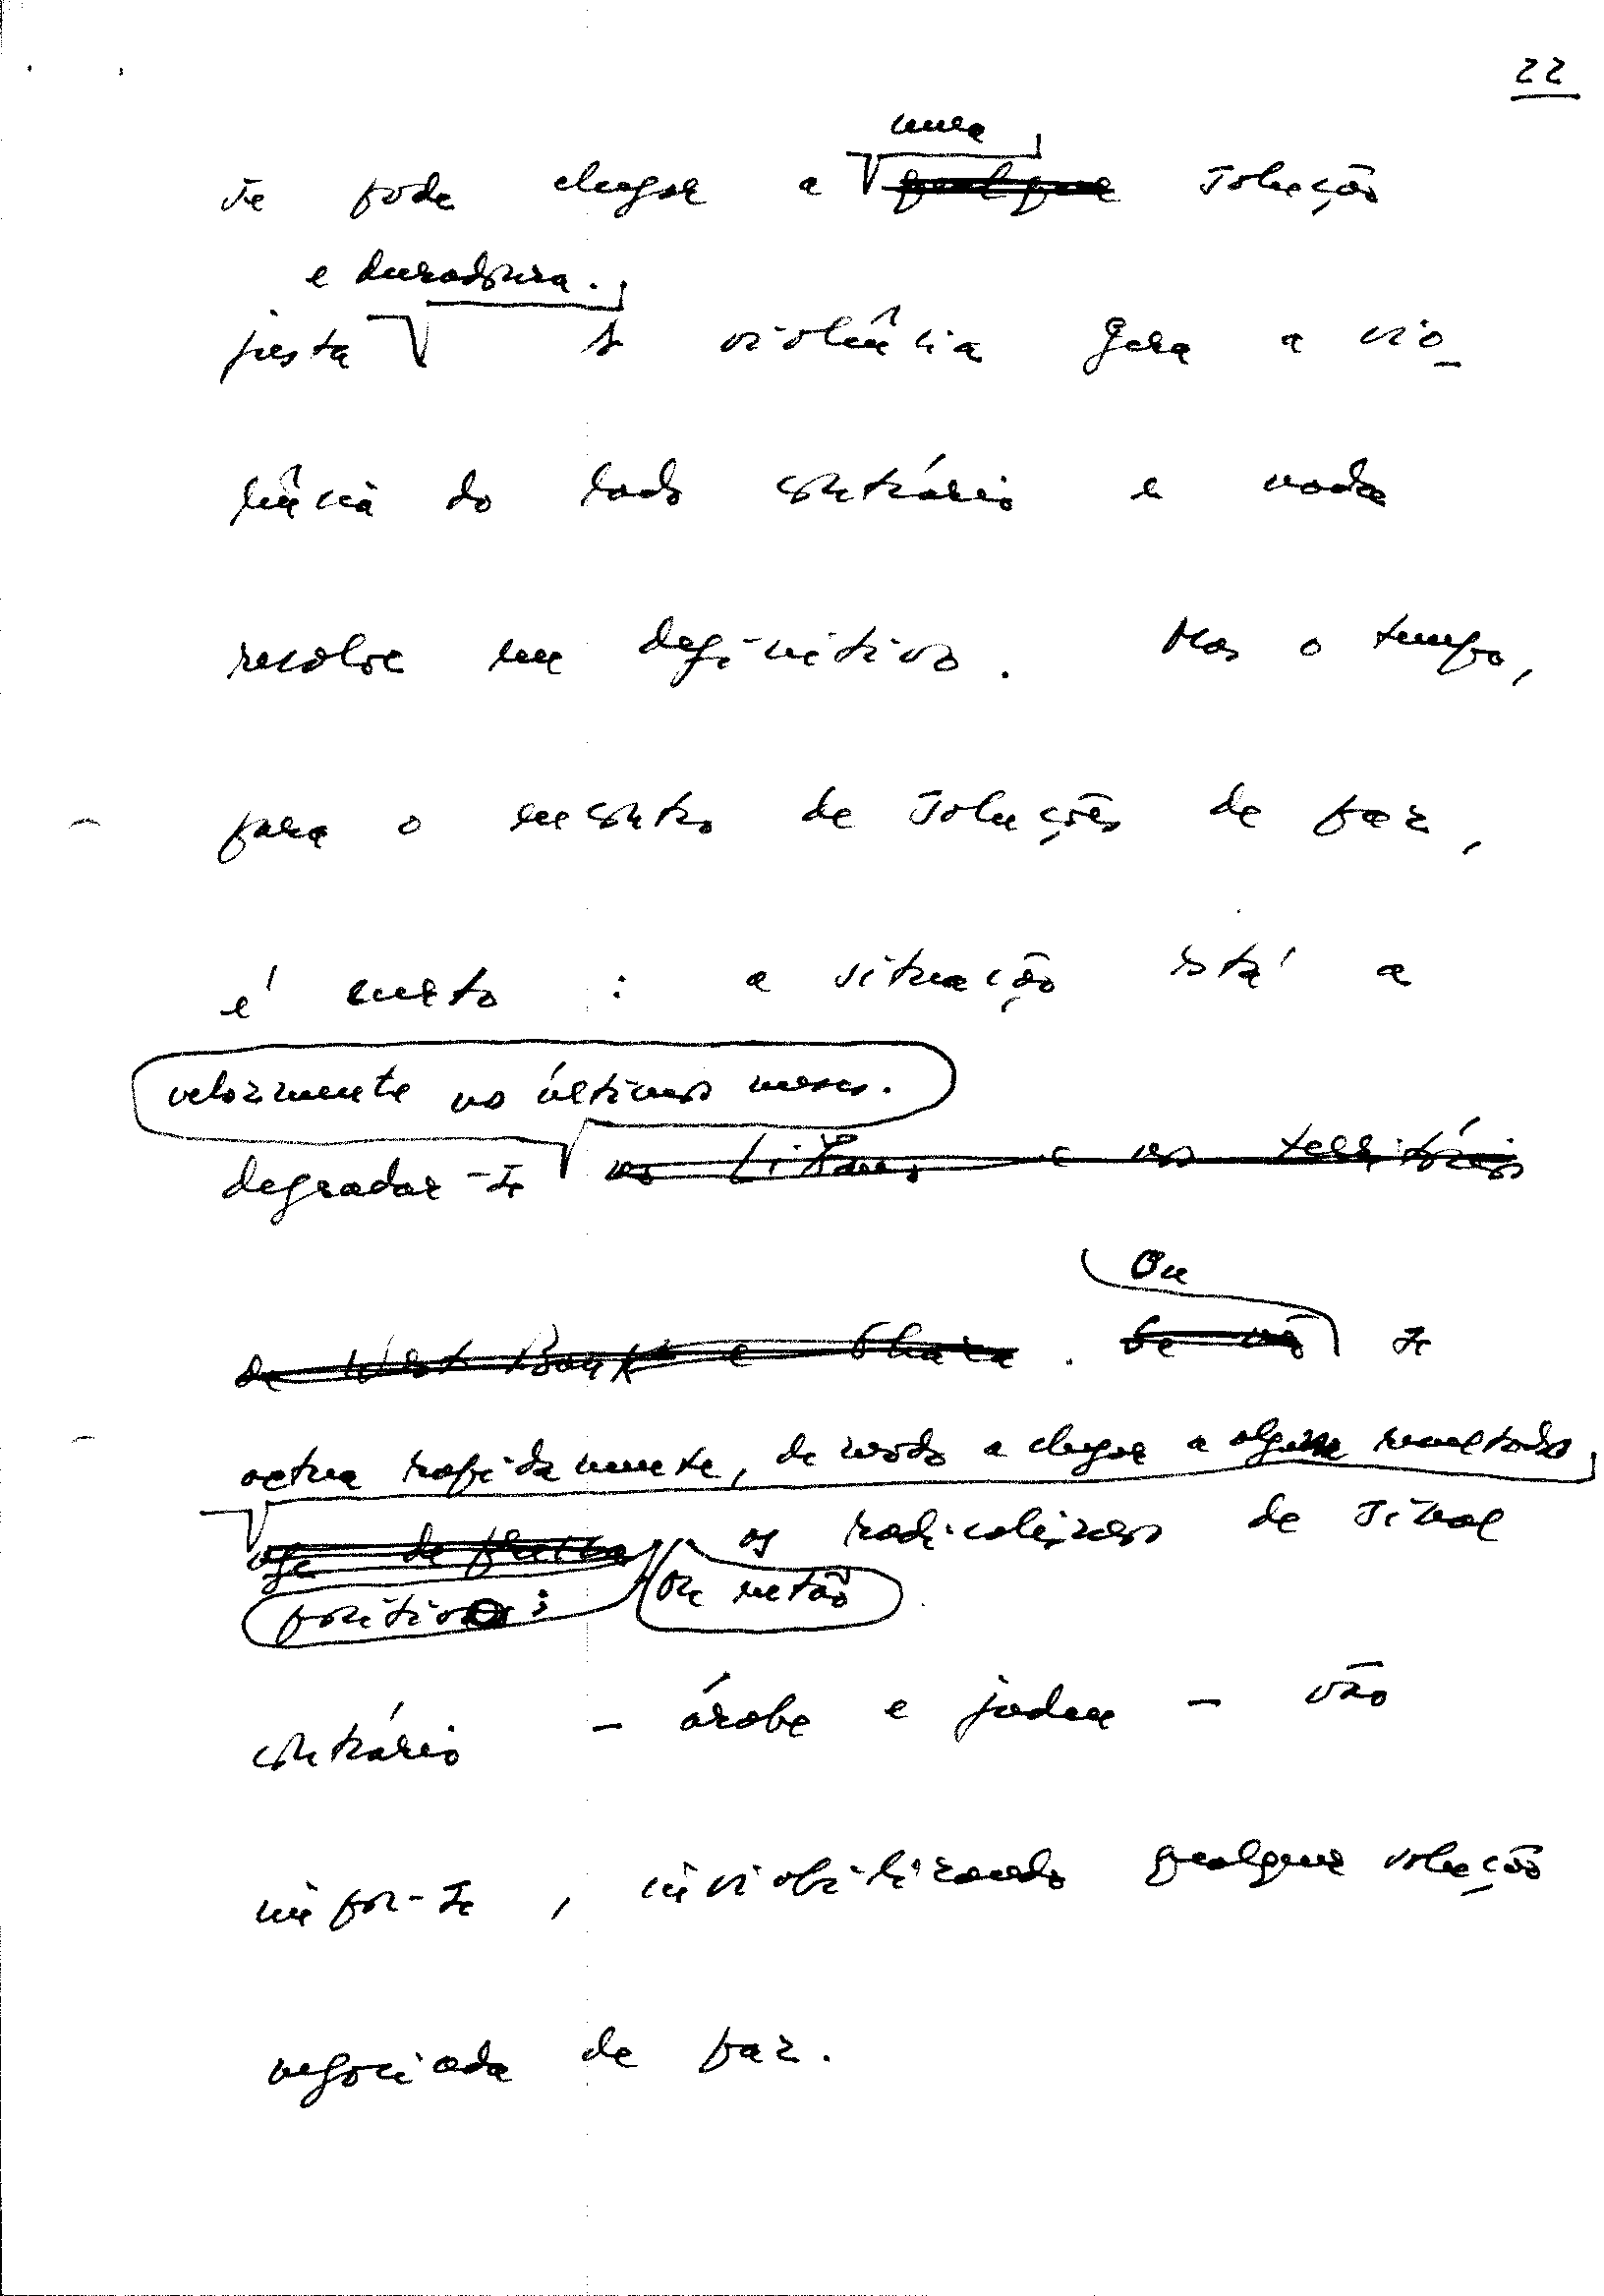 22
uma
se pode chegar a qualquer solução
e duradoura.
justa A violência gera a vio-
lência do lado contrário e nada
resolve em definitivo. Mas o tempo,
para o encontro de soluções de paz,
é curto : a situação está a
velozmente nos últimos meses.
degradar-se no Líbano e nos territórios
de West Bank e Ghaza. Se não se
Ou
actua rapidamente, de modo a chegar a algum resultado
os radicalismos de sinal
positivo; ou então
contrário - árabe e judeu - vão
impor-se, inviabilizando qualquer solução
negociada de paz.